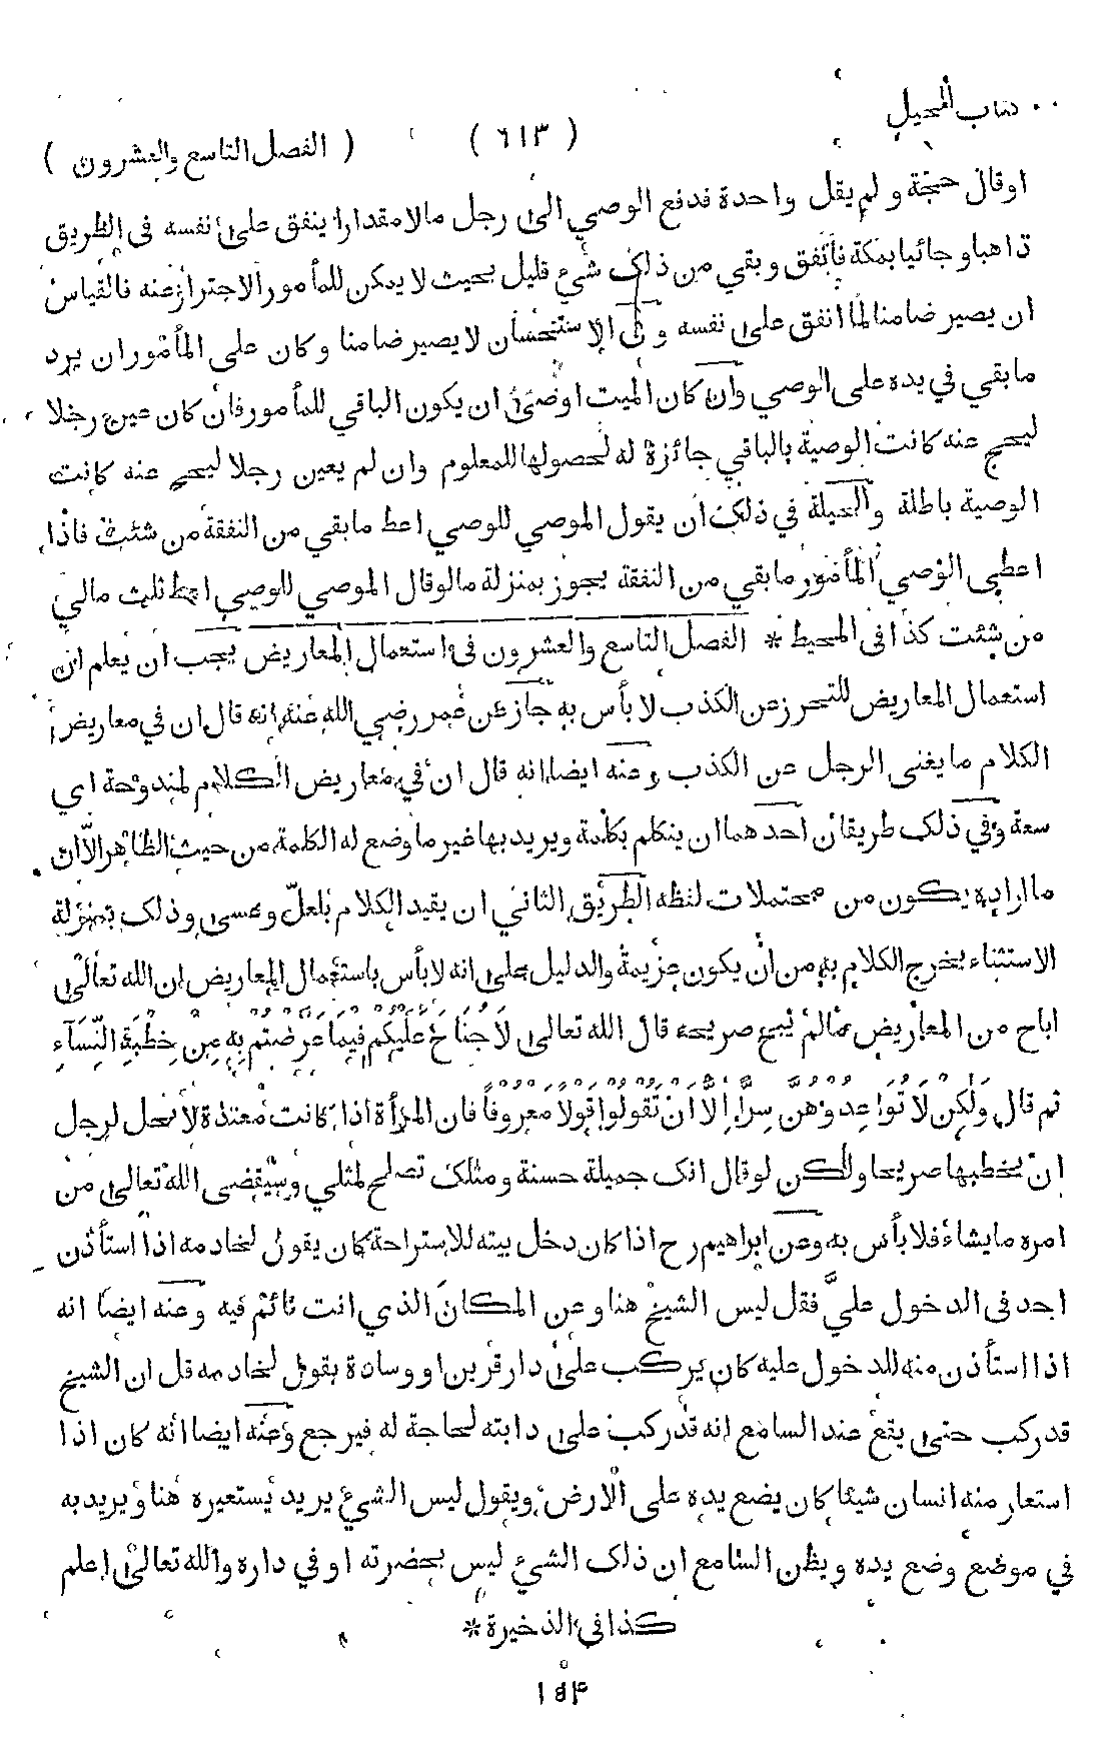 كتاب الحيل
( ٦١٣ )
( الفصل التاسع والعشرون )
اوقال حجة و لم يقل واحدة فدفع الوصي الى رجل مالا مقدارا ينفق على نفسه فى الطريق
ذاهبا و جائيا بمكة فأنفق و بقي من ذلك شيء قليل بحيث لا يمكن للمأمور الاحتراز عنه فالقياس
ان يصير ضامنا لما انفق على نفسه و فى الاستحسان لا يصير ضامنا و كان على المأمور ان يرد
ما بقي في يده على الوصي وان كان الميت اوصى ان يكون الباقي للمأمور فان كان عين رجلا
ليحج عنه كانت الوصية بالباقي جائزة له لحصولها للمعلوم وان لم يعين رجلا ليحج عنه كانت
الوصية باطلة والحيلة في ذلك ان يقول الموصي للوصي اعط ما بقي من النفقة من شئت فاذا
اعطى الوصي المأمور ما بقي من النفقة يجوز بمنزلة ما لوقال الموصي للوصي اعط ثلث مالي
من شئت كذا فى المحيط * الفصل التاسع والعشرون فى استعمال المعاريض يجب ان يعلم ان
استعمال المعاريض للتحرز عن الكذب لا بأس به جاز عن عمر رضي الله عنه انه قال ان في معاريض
الكلام ما يغنى الرجل عن الكذب وعنه ايضا انه قال ان في معاريض الكلام لمندوحة اي
سعة وفي ذلك طريقان احدهما ان يتكلم بكلمة ويريد بها غير ما وضع له الكلمة من حيث الظاهر الا ان
ما اراد به يكون من محتملات لفظه الطريق الثاني ان يقيد الكلام بلعل وعسى وذلك بمنزلة
الاستثناء يخرج الكلام به من ان يكون عزيمة والدليل على انه لا بأس باستعمال المعاريض ان الله تعالى
اباح من المعاريض ما لم يبح صريحه قال الله تعالى لَا جُنَاحَ عَلَيْكُمْ فِيمَا عَرَّضْتُمْ بِهِ مِنْ خِطْبَةِ النِّسَآءِ
ثم قال وَلٰكِنْ لَا تُوَاعِدُوْهُنَّ سِرًّا اِلَّا اَنْ تَقُولُوا قَوْلًا مَعْرُوفًا فان المرأة اذا كانت معتدة لا يحل لرجل
ان يخطبها صريحا ولكن لو قال انك جميلة حسنة ومثلك تصلح لمثلي وسيقضى الله تعالى من
امره ما يشاء فلا بأس به وعن ابراهيم رح اذا كان دخل بيته للاستراحة كان يقول لخادمه اذا استأذن
احد فى الدخول عليّ فقل ليس الشيخ هنا و عن المكان الذي انت نائم فيه وعنه ايضا انه
اذا استأذن منه للدخول عليه كان يركب على دار فرين او وسادة يقول لخادمه قل ان الشيخ
قد ركب حتى يقع عند السامع انه قد ركب على دابته لحاجة له فيرجع وعنه ايضا انه كان اذا
استعار منه انسان شيئا كان يضع يده على الارض ويقول ليس الشيء يريد يستعيره هنا و يريد به
في موضع وضع يده ويظن السامع ان ذلك الشيء ليس بحضرته او في داره والله تعالى اعلم
كذا في الذخيرة *